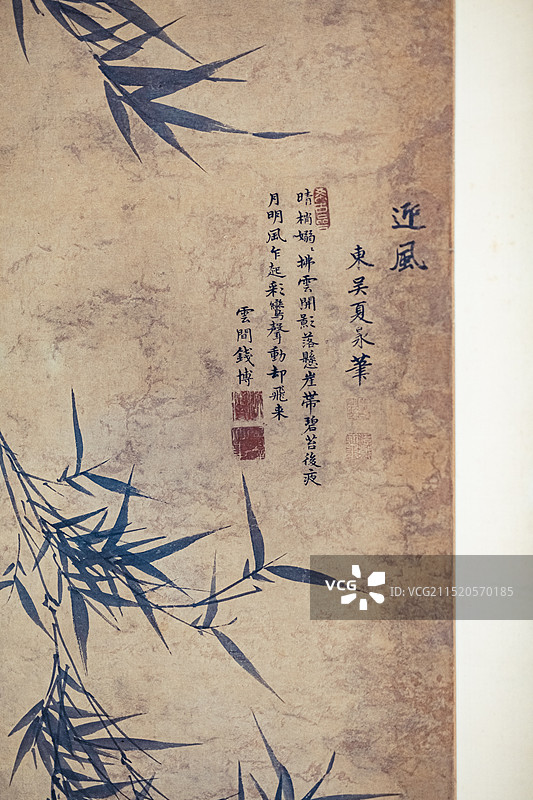 近風
東吴夏㫤筆
晴梢嫋〻拂雲開影落懸崖帶碧苔後夜
月明風乍起彩鸞聲動却飛来
雲間錢博
VCG
ID:VCG211520570185